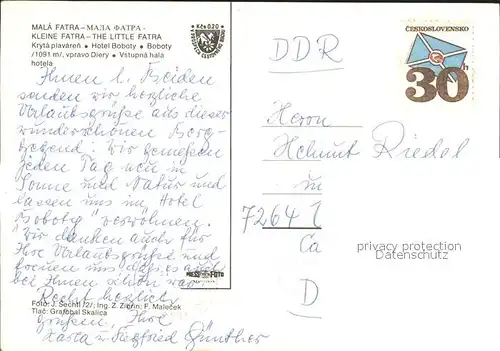 MALÁ FATRA – МАЛА ФАТРА -
KLEINE FATRA – THE LITTLE FATRA
Krytá plaváreň • Hotel Boboty • Boboty
/1091 m/, vpravo Diery • Vstupná hala
hotela
Kčs 0,20
Ihnen l. beiden
senden wir herzliche
Urlaubsgrüße aus dieser
wunderschönen Berg-
gegend. Wir genießen
jeden Tag neu in
Sonne und Natur und
lassen uns im Hotel
"Boboty" verwöhnen.
Wir danken auch für
Ihre Urlaubsgrüße und
freuen uns, daß es auch
bei Ihnen schön war
Recht herzlich
grüßen Ihre
und Siegfried Günther
PRESSFOTO
Foto: J. Sechtl /2/, Ing. Z. Zipřin, F. Maleček
Tlač: Grafobal Skalica
DDR
ČESKOSLOVENSKO
30h
Herrn
Helmut Riedel
7264
Ca
D
privacy protection
Datenschutz